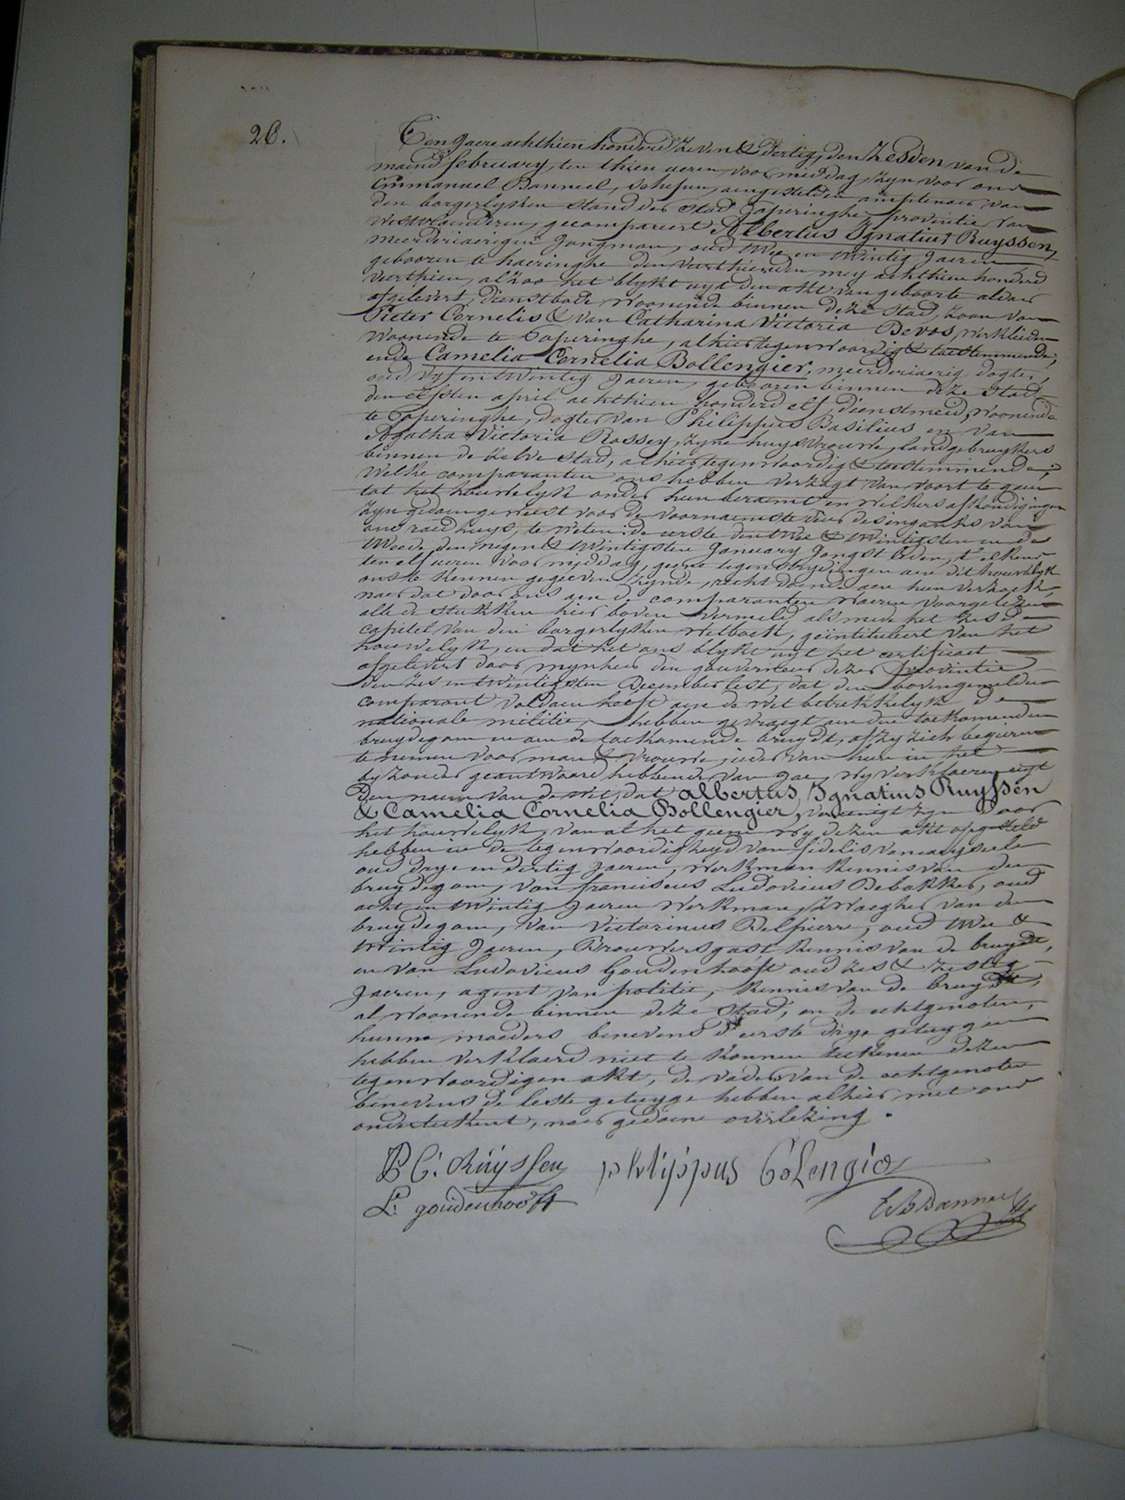 26.
Ten Jaere achthien honderd Zeven & dertig, den Zesden van de
maend february, ten thien ueren voor middag, zijn voor ons
Emmanuel Banneel, Schepen, aengestelden amptenaer van
den borgerlyken stand der Stad Poperinghe provintie van
Westvlaenderen, gecompareert Albertus Ignatius Ruyssen,
meerderjaerigen Jongman, oud twee en twintig Jaeren
gebooren te haeringhe den veerthienden mey achthien honderd
veerthien, alzoo het blykt uyt den akt van geboorte aldaer
afgelevert, dienstbode woonende binnen deze Stad, Zoon van
Pieter Cornelis & van Catharina Victoria Devos, werklieden
woonende te Poperinghe, alhier tegenwoordig & toestemmende,
ende Camelia Cornelia Bollengier, meerderjaerig dogter,
oud vyf en twintig Jaeren, gebooren binnen deze Stad
den elfsten april achthien honderd elf, dienstmeid, woonende
te Poperinghe, dogter van Philippus Basilius en van
Agatha Victoria Rossey, zyne huysvrouwe, landgebruykers
binnen de zelve stad, alhier tegenwoordig & toestemmende;
Welke comparanten ons hebben verzogt van voort te gaen
tot het houwelyk onder hun beraemt en welkers afkondigingen
zyn gedaen geweest voor de voornaemste deur des ingangs van
ons raedhuys, te weten: de eerste den twee & twintigsten en de
tweede den negen & twintigsten January Jongst leden, t'elkens
ten elf ueren voor middag, geene tegenstrydingen aen dit houwelyk
ons te kennen gegeeven zynde, recht doende aen hun verzoek,
naer dat door ons aen de comparanten waeren voorgelezen
alle de stukken hier boven vermeld als mede het zesde
capitel van den borgerlyken wetboek, geïntituleert van het
houwelyk, en dat het ons blykt uyt het certificaet
afgelevert door mynheer den gouverneur dezer provintie
den zes en twintigsten December lest, dat den bovengemelden
comparant voldaen heeft aen de wet betrekkelyk de
nationale militie, hebben gevraegt aen den toekomenden
bruydegom en aen de toekomende bruyd, of zy zich begeeren
te neemen voor man & vrouwe, ieder van hun in het
byzonder geantwoord hebbende van Jae, wy verklaeren uyt
den naem van de wet, dat albertus Ignatius Ruyssen
& Camelia Cornelia Bollengier, vereenigt zyn door
het houwelyk, van al het geene wy dezen akt opgesteld
hebben in de tegenwoordigheyd van fidelis
oud drye en dertig Jaeren, werkman kennis van den
bruydegom, van franciscus Ludovicus Debakker, oud
acht en twintig Jaeren werkman, Zwaegher van den
bruydegom, van Victorinus Delpierre, oud twee &
twintig Jaeren, Brouwersgast kennis van de bruyd,
en van Ludovicus Goudenhooft oud zes & zestig
Jaeren, agent van politie, kennis van de bruyd,
al woonende binnen deze stad, en de echtgenoten,
hunne moeders benevens d'eerste drye getuygen
hebben verklaerd niet te konnen teekenen dezen
tegenwoordigen akt, de vaders van de echtgenoten
benevens de leste getuyge hebben alhier met ons
onderteekent, naer gedaene overlezing.
P C: Ruyssen philippus Bolengier
L: goudenhooft
E Banneel